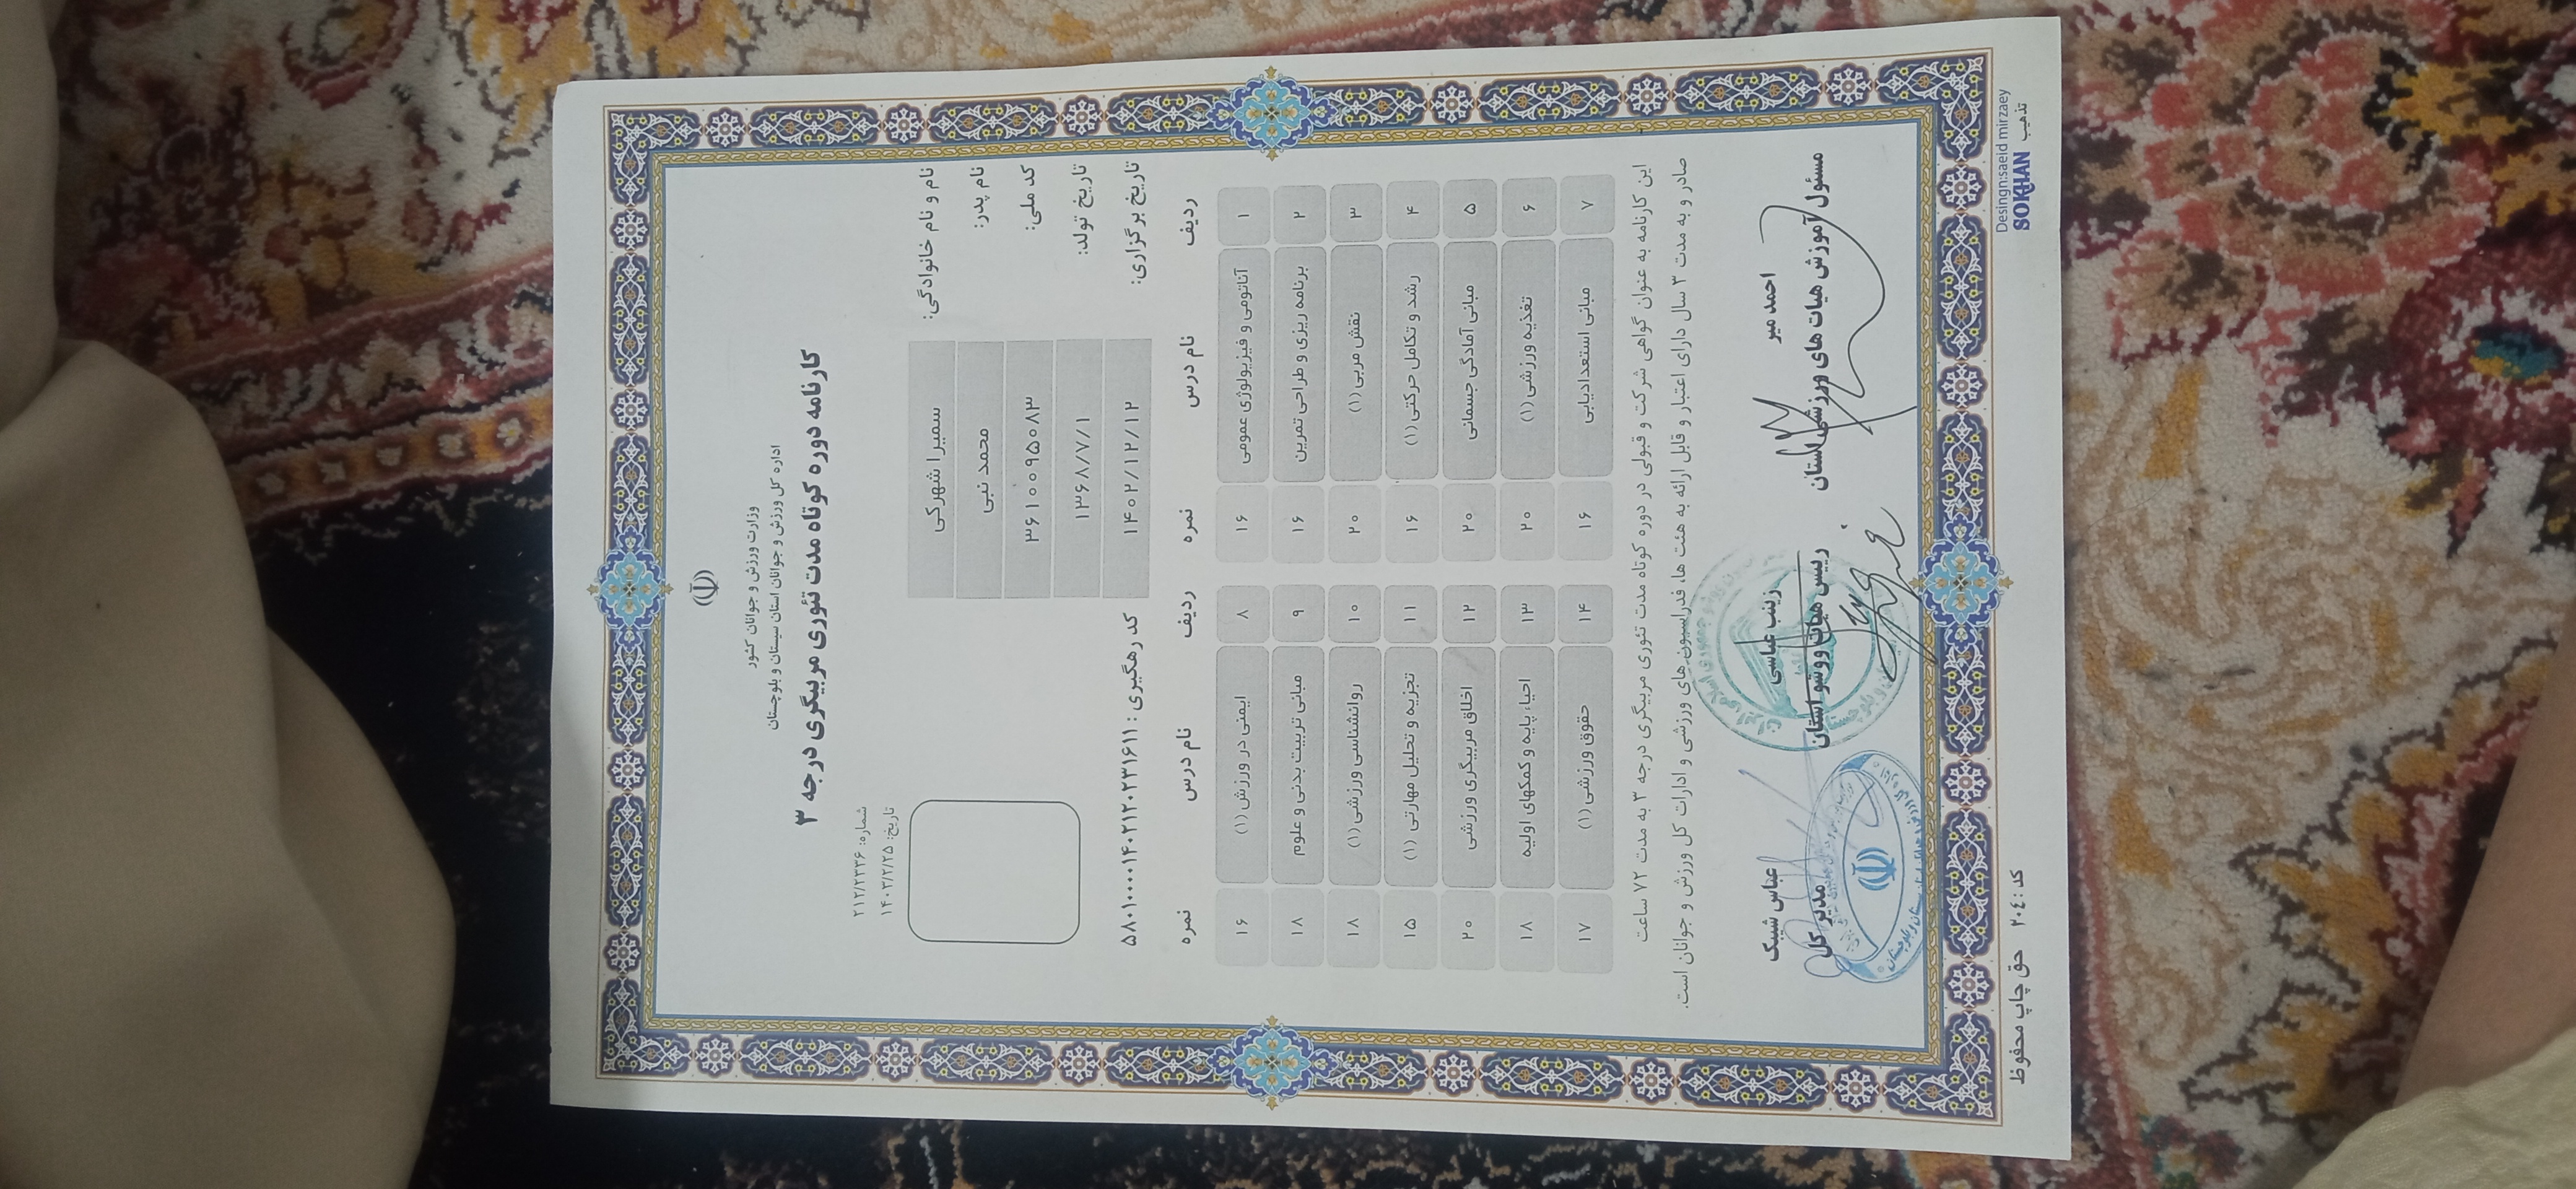 وزارت ورزش و جوانان کشور
اداره کل ورزش و جوانان استان سیستان و بلوچستان
کارنامه دوره کوتاه مدت تئوری مربیگری درجه ۳
شماره: ۲۱۲/۲۳۳۶
تاریخ: ۱۴۰۳/۲/۲۵
نام و نام خانوادگی: سمیرا شهرکی
نام پدر: محمد نبی
کد ملی: ۳۶۱۰۰۹۵۰۸۳
تاریخ تولد: ۱۳۶۸/۷/۱
تاریخ برگزاری: ۱۴۰۲/۱۲/۱۲ کد رهگیری : ۵۸۰۱۰۰۰۰۱۴۰۲۱۲۰۲۳۱۶۱۱
ردیف نام درس نمره ردیف نام درس نمره
۱ آناتومی و فیزیولوژی عمومی ۱۶ ۸ ایمنی در ورزش (۱) ۱۶
۲ برنامه ریزی و طراحی تمرین ۱۶ ۹ مبانی تربیت بدنی و علوم ۱۸
۳ نقش مربی (۱) ۲۰ ۱۰ روانشناسی ورزشی (۱) ۱۸
۴ رشد و تکامل حرکتی (۱) ۱۶ ۱۱ تجزیه و تحلیل مهارتی (۱) ۱۵
۵ مبانی آمادگی جسمانی ۲۰ ۱۲ اخلاق مربیگری ورزشی ۲۰
۶ تغذیه ورزشی (۱) ۲۰ ۱۳ احیاء پایه و کمکهای اولیه ۱۸
۷ مبانی استعدادیابی ۱۶ ۱۴ حقوق ورزشی (۱) ۱۷
این کارنامه به عنوان گواهی شرکت و قبولی در دوره کوتاه مدت تئوری مربیگری درجه ۳ به مدت ۷۲ ساعت
صادر و به مدت ۳ سال دارای اعتبار و قابل ارائه به هیئت ها، فدراسیون های ورزشی و ادارات کل ورزش و جوانان است.
احمد میر زینب عباسی عباس شیبک
مسئول آموزش هیات های ورزشی استان رییس هیات ووشو استان مدیر کل
Desingn:saeid mirzaey
SOKHAN تذهیب
کد :۲۰٤۰ حق چاپ محفوظ